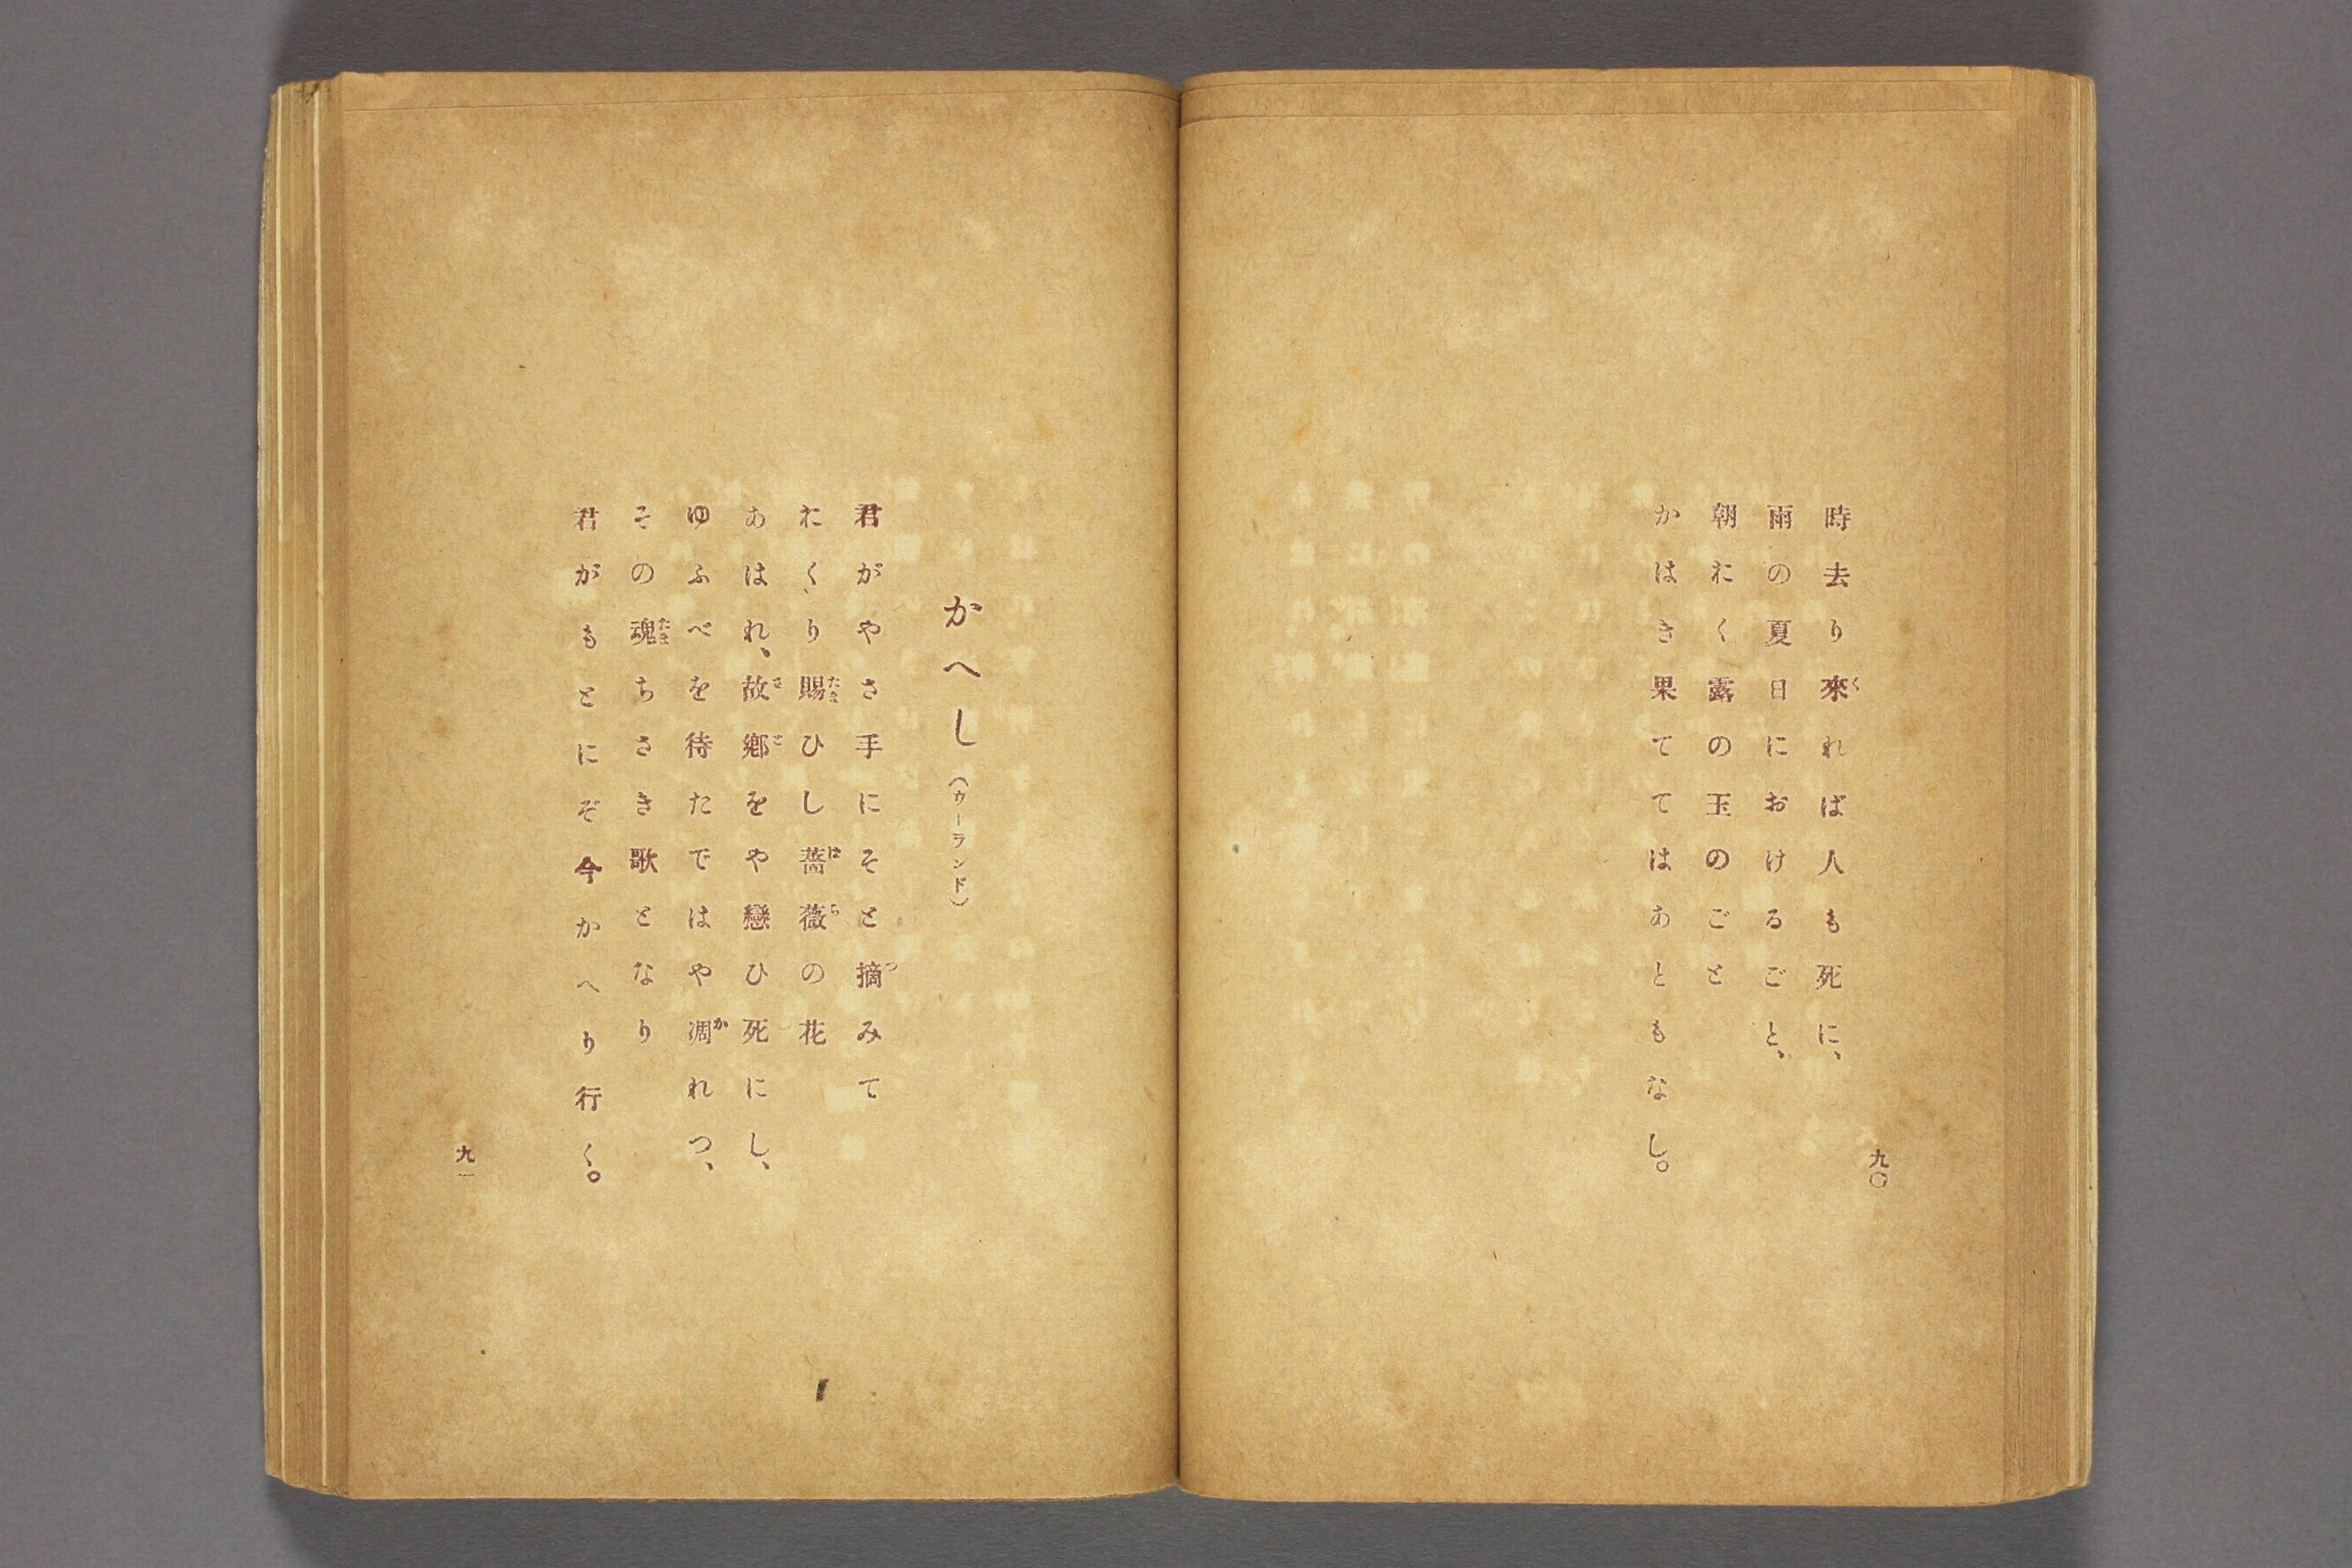 時去り來れば人も死に、
雨の夏日におけるごと、
朝おく露の玉のごと
かはき果てゝはあともなし。
九〇
かへし（ウーランド）
君がやさ手にそと摘みて
おくり賜ひし薔薇の花
あはれ、故郷をや戀ひ死にし、
ゆふべを待たではや凋れつ、
その魂ちさき歌となり
君がもとにぞ今かへり行く。
九一